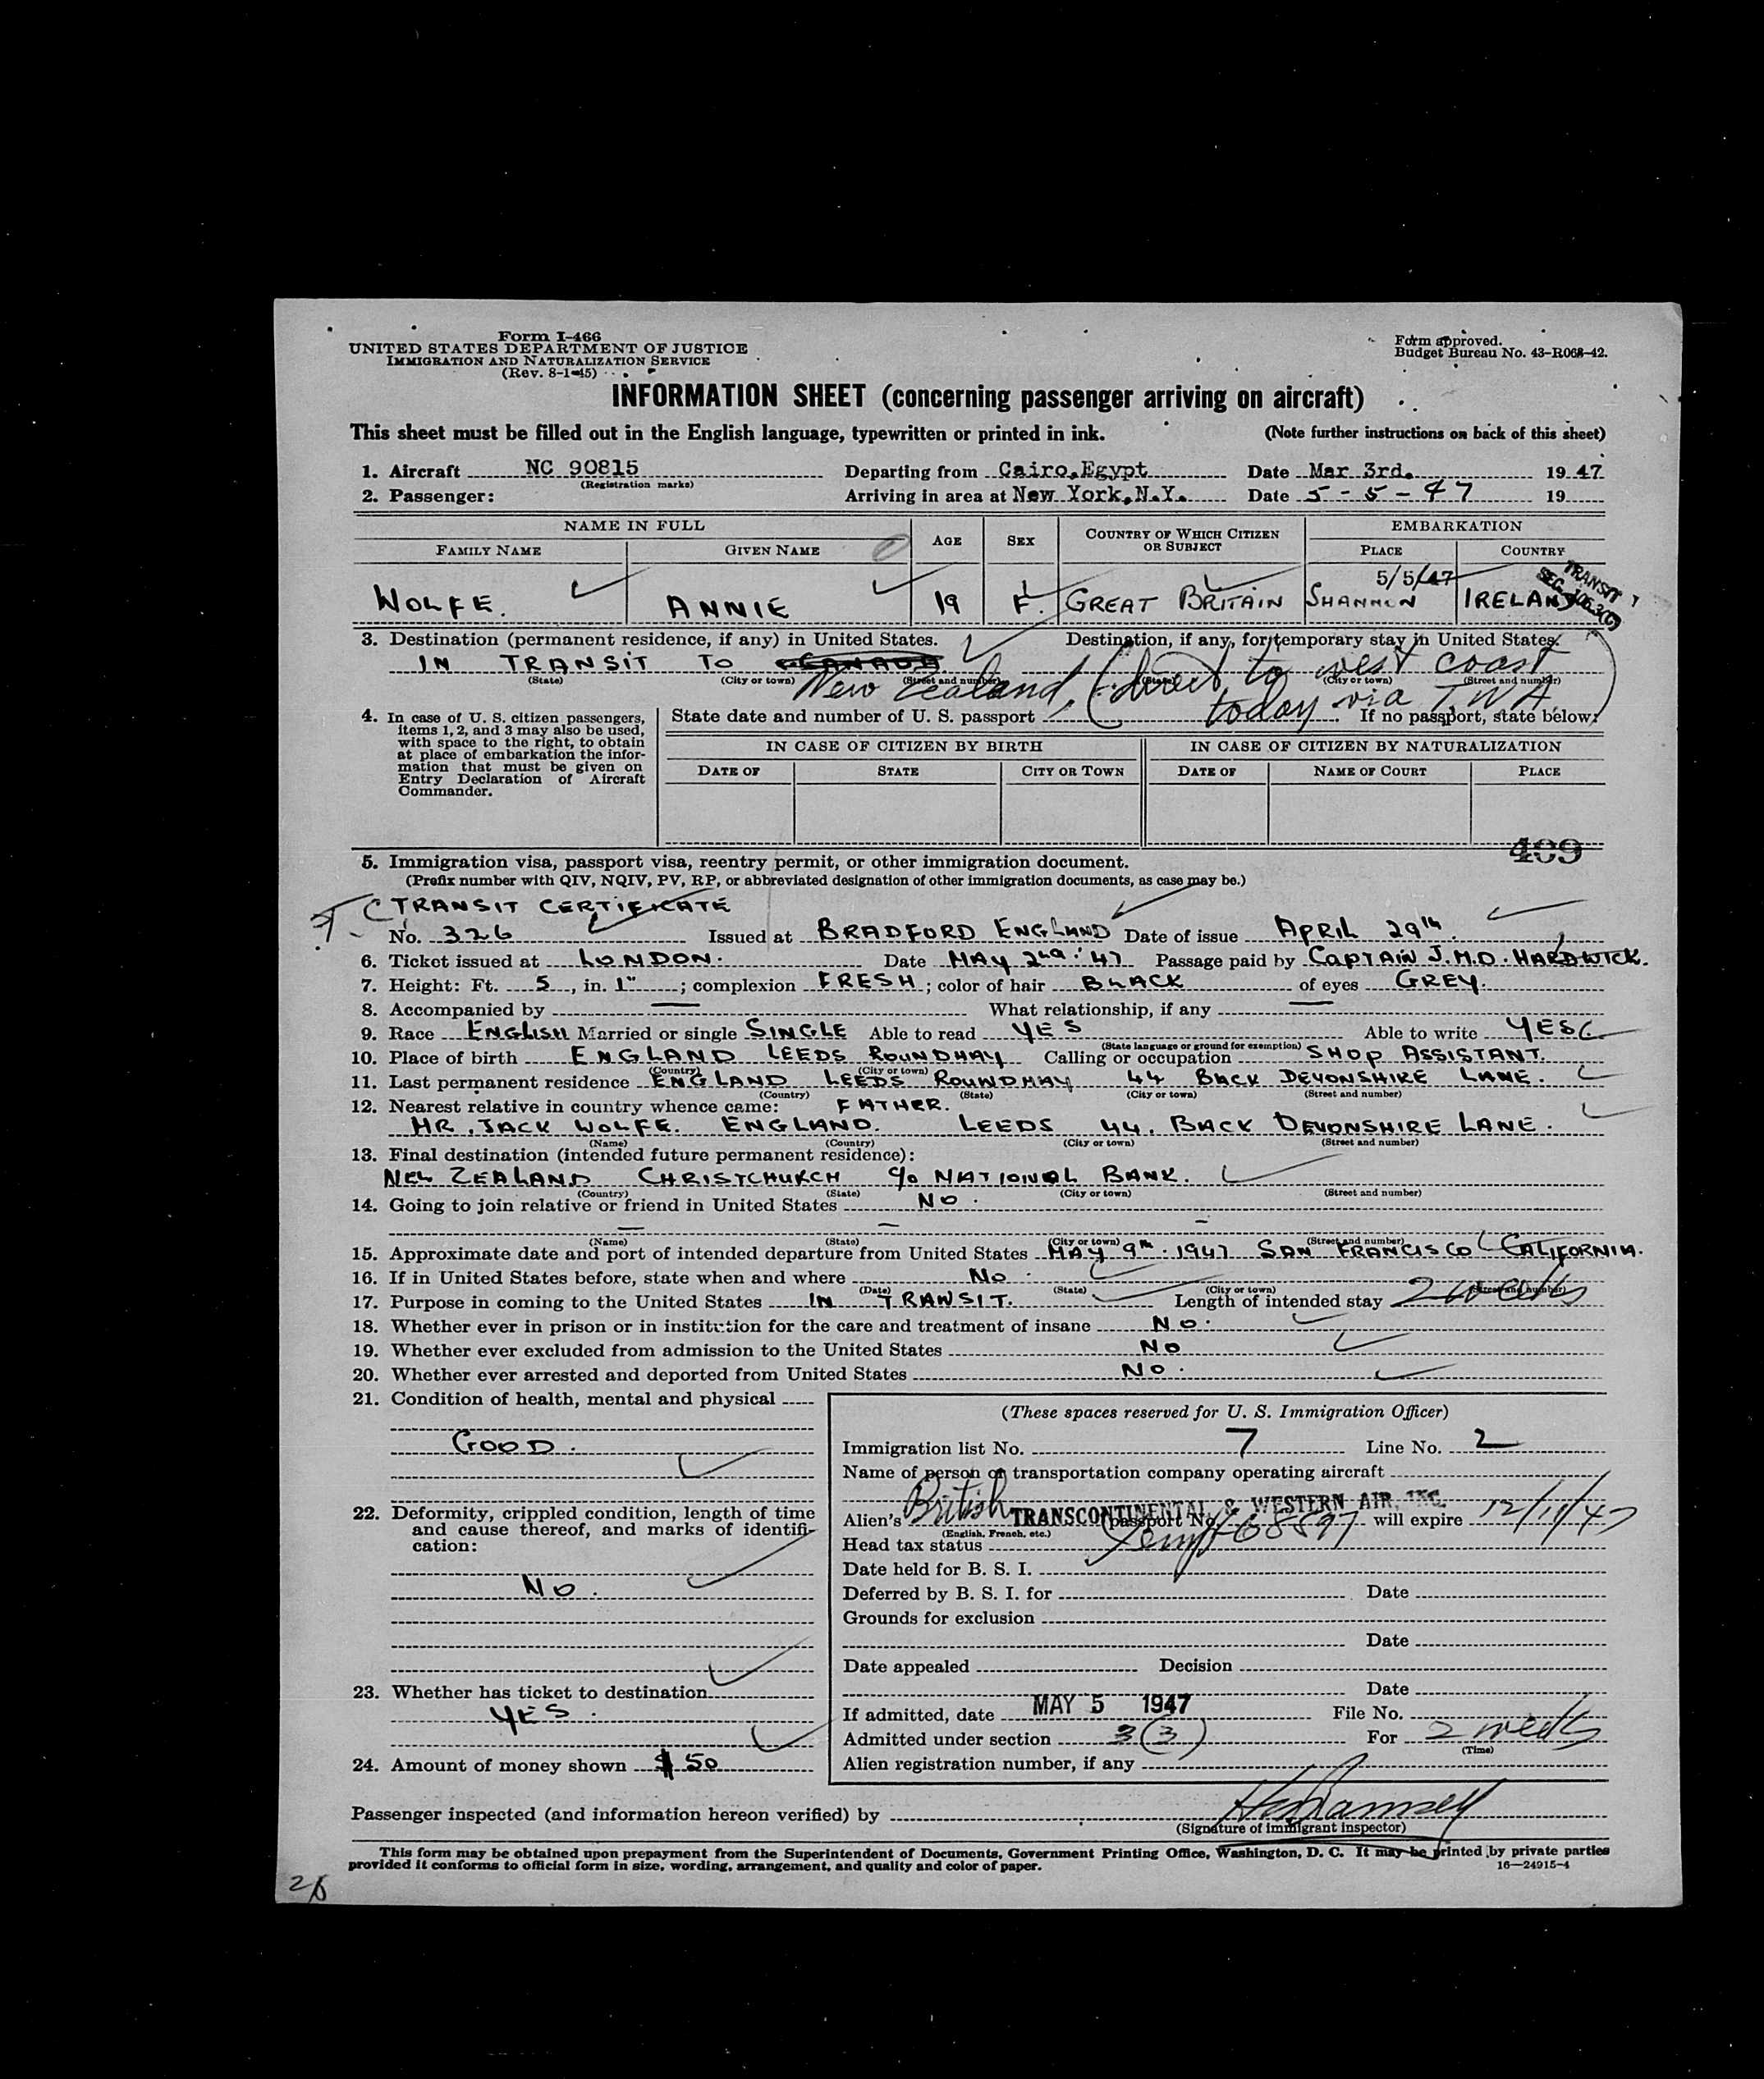 Form I-466
UNITED STATES DEPARTMENT OF JUSTICE
IMMIGRATION AND NATURALIZATION SERVICE
(Rev. 8-1-45)
Form approved.
Budget Bureau No. 43-R068-42.
INFORMATION SHEET (concerning passenger arriving on aircraft)
This sheet must be filled out in the English language, typewritten or printed in ink. (Note further instructions on back of this sheet)
1. Aircraft NC 90815 Departing from Cairo,Egypt Date Mar 3rd. 19 47
(Registration marks)
2. Passenger: Arriving in area at New York,N.Y. Date 5-5-47 19
NAME IN FULL AGE SEX COUNTRY OF WHICH CITIZEN OR SUBJECT EMBARKATION
FAMILY NAME GIVEN NAME PLACE COUNTRY
5/5/47 TRANSIT
WOLFE. ANNIE 19 F. GREAT BRITAIN SHANNON IRELAND
3. Destination (permanent residence, if any) in United States. Destination, if any, for temporary stay in United States.
IN TRANSIT TO CANADA
New Zealand, (direct to west coast
today via TWA)
(State) (City or town) (Street and number) (State) (City or town) (Street and number)
4. In case of U. S. citizen passengers, items 1, 2, and 3 may also be used, with space to the right, to obtain at place of embarkation the information that must be given on Entry Declaration of Aircraft Commander.
State date and number of U. S. passport If no passport, state below:
IN CASE OF CITIZEN BY BIRTH IN CASE OF CITIZEN BY NATURALIZATION
DATE OF STATE CITY OR TOWN DATE OF NAME OF COURT PLACE
409
5. Immigration visa, passport visa, reentry permit, or other immigration document.
(Prefix number with QIV, NQIV, PV, RP, or abbreviated designation of other immigration documents, as case may be.)
TRANSIT CERTIFICATE
No. 326 Issued at BRADFORD ENGLAND Date of issue APRIL 29th.
6. Ticket issued at LONDON. Date MAY 2nd. 47 Passage paid by CAPTAIN J.M.D. HARDWICK.
7. Height: Ft. 5, in. 1"; complexion FRESH; color of hair BLACK of eyes GREY.
8. Accompanied by — What relationship, if any —
9. Race ENGLISH Married or single SINGLE Able to read YES Able to write YES
(State language or ground for exemption)
10. Place of birth ENGLAND LEEDS ROUNDHAY Calling or occupation SHOP ASSISTANT.
(Country) (City or town)
11. Last permanent residence ENGLAND LEEDS ROUNDHAY 44 BACK DEVONSHIRE LANE.
(Country) (State) (City or town) (Street and number)
12. Nearest relative in country whence came: FATHER.
MR. JACK WOLFE. ENGLAND. LEEDS 44. BACK DEVONSHIRE LANE.
(Name) (Country) (City or town) (Street and number)
13. Final destination (intended future permanent residence):
NEW ZEALAND CHRISTCHURCH c/o NATIONAL BANK.
(Country) (State) (City or town) (Street and number)
14. Going to join relative or friend in United States NO.
— — —
(Name) (State) (City or town) (Street and number)
15. Approximate date and port of intended departure from United States MAY 9th. 1947 SAN FRANCISCO CALIFORNIA.
16. If in United States before, state when and where NO.
(Date) (State) (City or town) (Street and number)
17. Purpose in coming to the United States IN TRANSIT. Length of intended stay 2 weeks
18. Whether ever in prison or in institution for the care and treatment of insane NO.
19. Whether ever excluded from admission to the United States NO
20. Whether ever arrested and deported from United States NO.
21. Condition of health, mental and physical
GOOD.
22. Deformity, crippled condition, length of time and cause thereof, and marks of identification:
NO.
23. Whether has ticket to destination
YES.
24. Amount of money shown $50
(These spaces reserved for U. S. Immigration Officer)
Immigration list No. 7 Line No. 2
Name of person or transportation company operating aircraft
TRANSCONTINENTAL & WESTERN AIR, INC.
Alien's British passport No. 68897 will expire 12/11/47
(English, French, etc.)
Head tax status
Date held for B. S. I.
Deferred by B. S. I. for Date
Grounds for exclusion
Date
Date appealed Decision
Date
If admitted, date MAY 5 1947 File No.
Admitted under section 3(3) For 2 weeks
(Time)
Alien registration number, if any
Passenger inspected (and information hereon verified) by
(Signature of immigrant inspector)
This form may be obtained upon prepayment from the Superintendent of Documents, Government Printing Office, Washington, D. C. It may be printed by private parties
provided it conforms to official form in size, wording, arrangement, and quality and color of paper. 16—24915-4